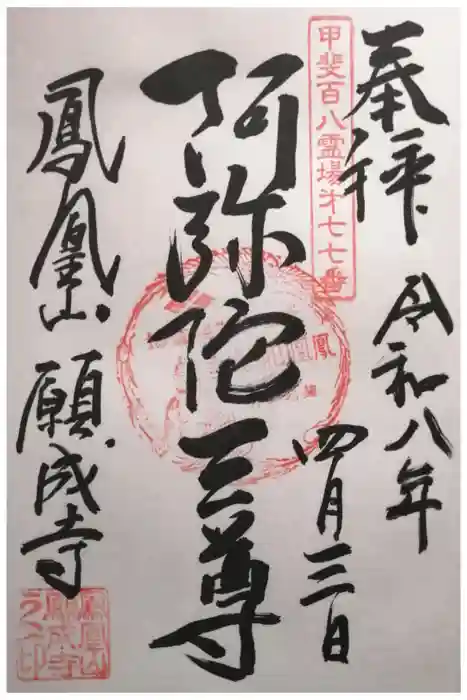 奉拝
甲斐百八霊場才七七番
令和八年
四月三日
阿弥陀三尊
鳳凰山
願成寺
鳳凰山
願成寺
之印